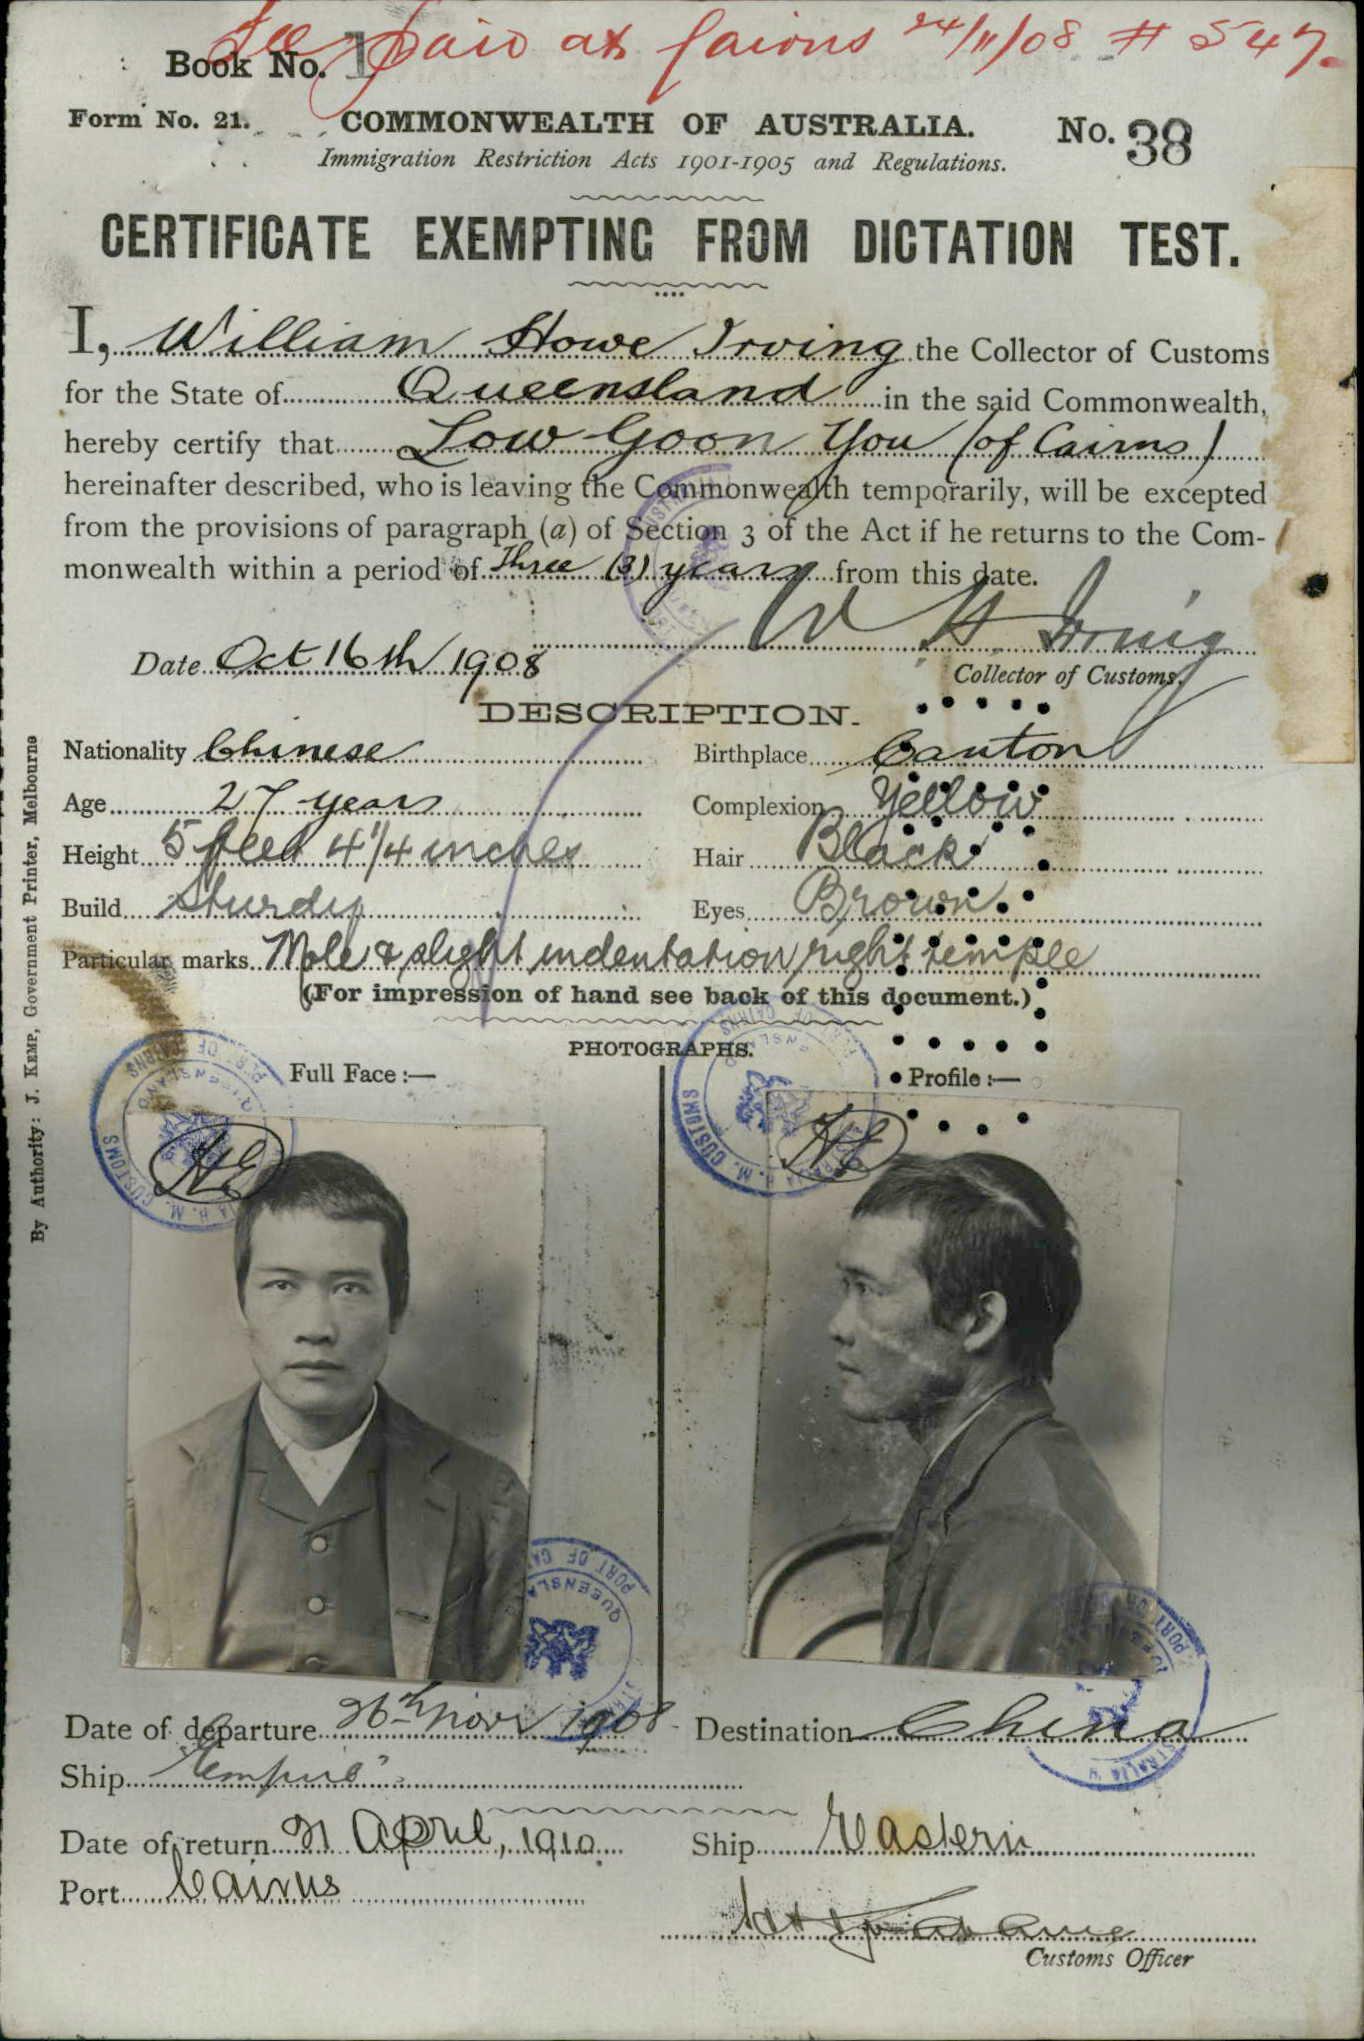 Fee paid at Cairns 24/11/08 # 547.
Book No. 1
Form No. 21.
COMMONWEALTH OF AUSTRALIA.
No. 38
Immigration Restriction Acts 1901-1905 and Regulations.
CERTIFICATE EXEMPTING FROM DICTATION TEST.
I, William Howe Irving the Collector of Customs
for the State of Queensland in the said Commonwealth,
hereby certify that Low Goon You (of Cairns)
hereinafter described, who is leaving the Commonwealth temporarily, will be excepted
from the provisions of paragraph (a) of Section 3 of the Act if he returns to the Com-
monwealth within a period of Three (3) years from this date.
W H Irving
Date Oct 16th 1908
Collector of Customs.
DESCRIPTION.
Nationality Chinese
Birthplace Canton
Age 27 years
Complexion Yellow
Height 5 feet 4 1/4 inches
Hair Black
Build Sturdy
Eyes Brown
Particular marks Mole & slight indentation right temple
(For impression of hand see back of this document.)
PHOTOGRAPHS.
Full Face :—
Profile :—
By Authority: J. KEMP, Government Printer, Melbourne
PORT OF CAIRNS
QUEENSLAND
H. M. CUSTOMS
Date of departure 26th Novr 1908
Destination China
Ship "Empire"
Date of return 21 April, 1910
Ship Eastern
Port Cairns
Customs Officer